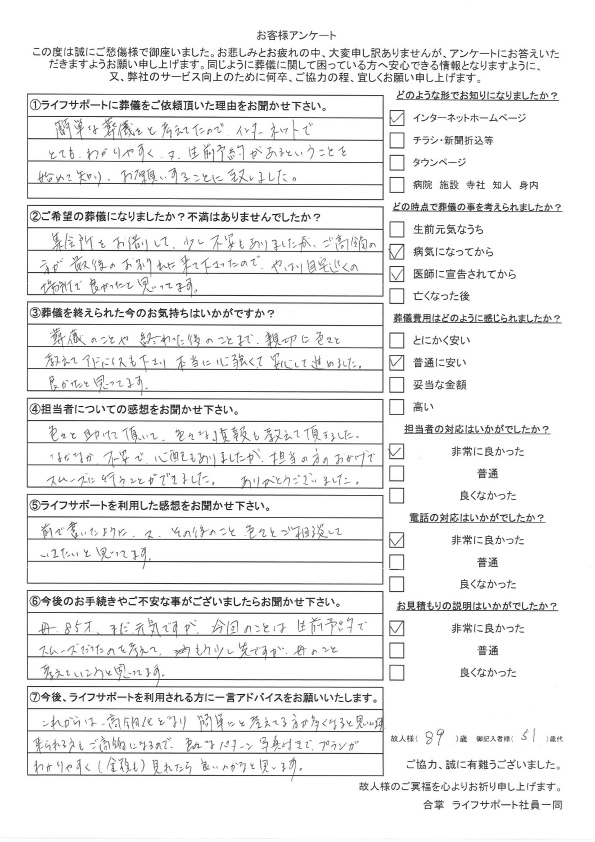 お客様アンケート
この度は誠にご愁傷様で御座いました。お悲しみとお疲れの中、大変申し訳ありませんが、アンケートにお答えいた
だきますようお願い申し上げます。同じように葬儀に関して困っている方へ安心できる情報となりますように、
又、弊社のサービス向上のために何卒、ご協力の程、宜しくお願い申し上げます。
①ライフサポートに葬儀をご依頼頂いた理由をお聞かせ下さい。
簡単な葬儀をと考えてたので、インターネットで
とても、わかりやすく、又、生前予約があるということを
始めて知り、お願いすることに致しました。
②ご希望の葬儀になりましたか？不満はありませんでしたか？
集会所をお借りして、少し不安もありましたが、ご高齢の
方が最後のお別れに来て下さったので、やはり自宅近くの
場所で良かったと思ってます。
③葬儀を終えられた今のお気持ちはいかがですか？
葬儀のことや終わった後のことまで、親切に色々と
教えてアドバイスも下さり本当に心強くて安心して進めました。
良かたと思ってます。
④担当者についての感想をお聞かせ下さい。
色々と助けて頂いて、色々な情報も教えて頂きました。
なかなか不安で、心配もありましたが、担当の方のおかげで
スムーズに行うことができました。ありがとうございました。
⑤ライフサポートを利用した感想をお聞かせ下さい。
前で書いたように、又、その後のこと色々とご相談して
いきたいと思ってます。
⑥今後のお手続きやご不安な事がございましたらお聞かせ下さい。
母、85才、まだ元気ですが、今回のことは生前予約で
スムーズだったのを考えて、もう少し先ですが、母のこと
考えていこうと思ってます。
⑦今後、ライフサポートを利用される方に一言アドバイスをお願いいたします。
これからは、高令化となり簡単にと考えてる方が多くなると思います
来られる方もご高齢になるので、パターン写真付きで、プランが
わかりやすく（金額も）見れたら良いのかなと思います。
どのような形でお知りになりましたか？
インターネットホームページ
チラシ・新聞折込等
タウンページ
病院 施設 寺社 知人 身内
どの時点で葬儀の事を考えられましたか？
生前元気なうち
病気になってから
医師に宣告されてから
亡くなった後
葬儀費用はどのように感じられましたか？
とにかく安い
普通に安い
妥当な金額
高い
担当者の対応はいかがでしたか？
非常に良かった
普通
良くなかった
電話の対応はいかがでしたか？
非常に良かった
普通
良くなかった
お見積もりの説明はいかがでしたか？
非常に良かった
普通
良くなかった
故人様（89）歳 御記入者様（51）歳代
ご協力、誠に有難うございました。
故人様のご冥福を心よりお祈り申し上げます。
合掌 ライフサポート社員一同